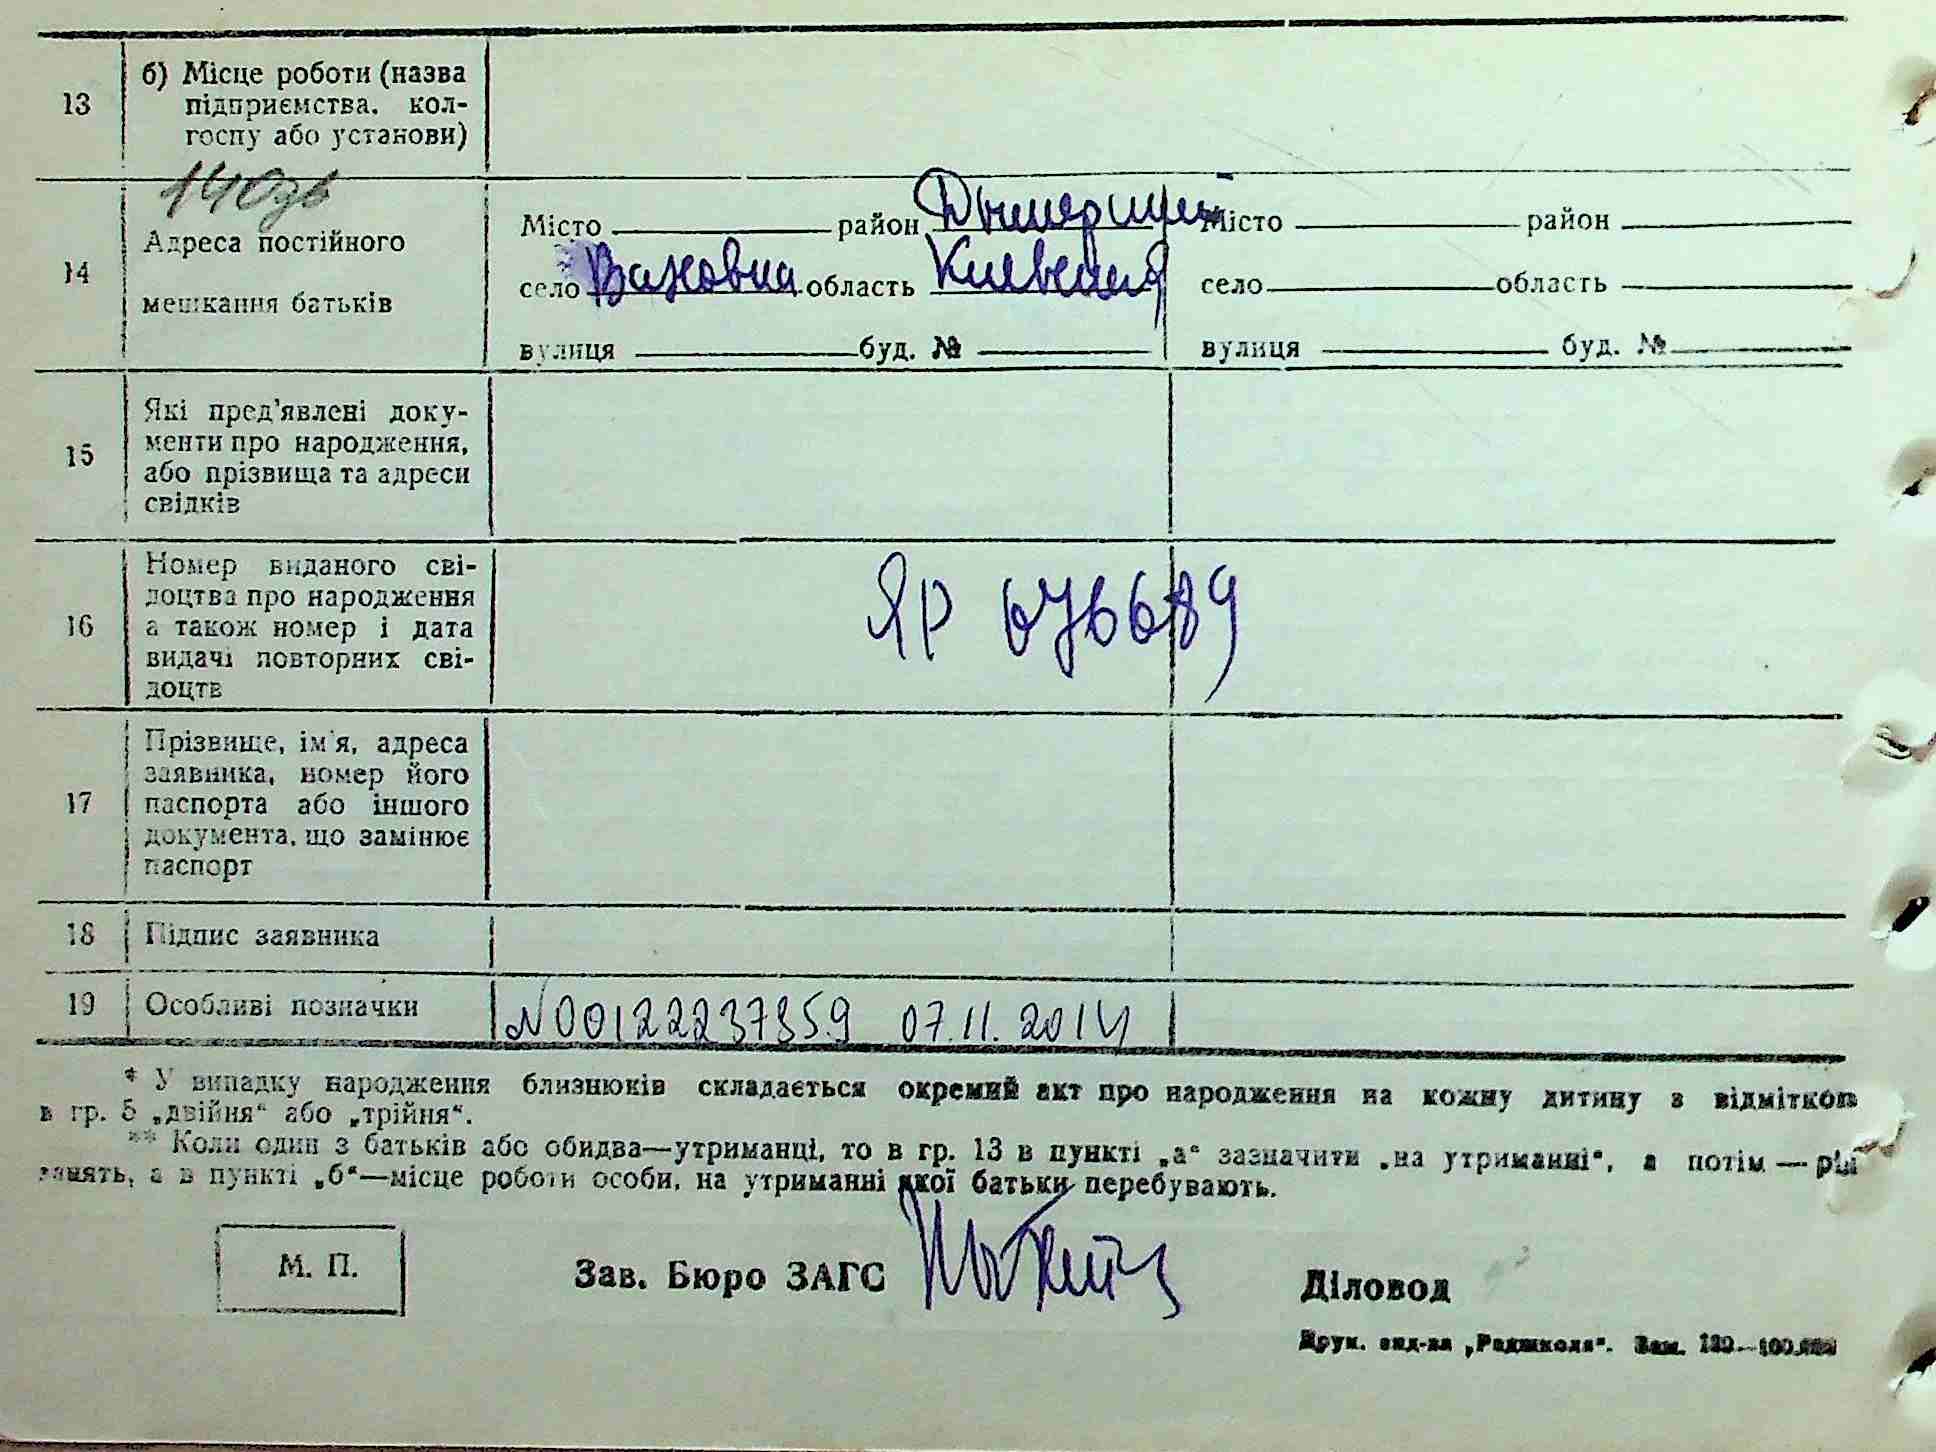 13
б) Місце роботи (назва
підприємства, кол-
госпу або установи)
14
Адреса постійного
мешкання батьків
Місто район Дымерский
село область Киевская
вулиця буд. №
Місто район
село область
вулиця буд. №
15
Які пред'явлені доку-
менти про народження,
або прізвища та адреси
свідків
16
Номер виданого сві-
доцтва про народження
а також номер і дата
видачі повторних сві-
доцтв
ЯР 676689
17
Прізвище, ім'я, адреса
заявника, номер його
паспорта або іншого
документа, що замінює
паспорт
18
Підпис заявника
19
Особливі позначки
N00122237359 07.11.2014
* У випадку народження близнюків складається окремий акт про народження на кожну дитину з відміткою
в гр. 5 „двійня“ або „трійня“.
** Коли один з батьків або обидва—утриманці, то в гр. 13 в пункті „а“ зазначити „на утриманні“, а потім —
занять, а в пункті „б“—місце роботи особи, на утриманні якої батьки перебувають.
М. П.
Зав. Бюро ЗАГС
Діловод
Друк. вид-ва „Радшкола“. Зам.